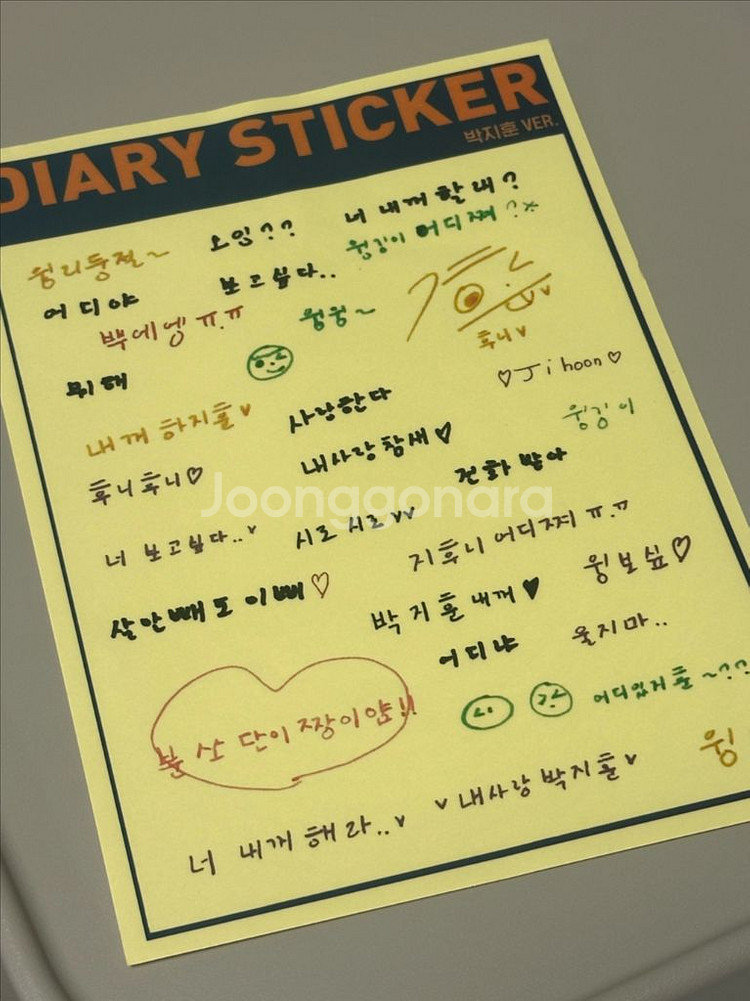 DIARY STICKER
박지훈 VER.
윙리둥절~
소임??
너 내꺼 할래?
어디야
보고싶다..
윙깅이 어디쪄?
뿌에엥 ㅠ.ㅠ
윙윙~
후니
뭐해
♡Jihoon♡
내꺼 하지훈
사랑한다
윙깅이
후니후니♡
내사랑참새♥
전화 받아
Joonggonara
너 보고싶다..
시로 시로
지후니 어디쪄 ㅠ.ㅠ
윙보싶♡
살안빼도 이뻐♡
박지훈내꺼♥
어디냐
울지마..
분산단이짱이얌!!
어디있지훈~??
윙
너 내꺼 해라..
내사랑박지훈